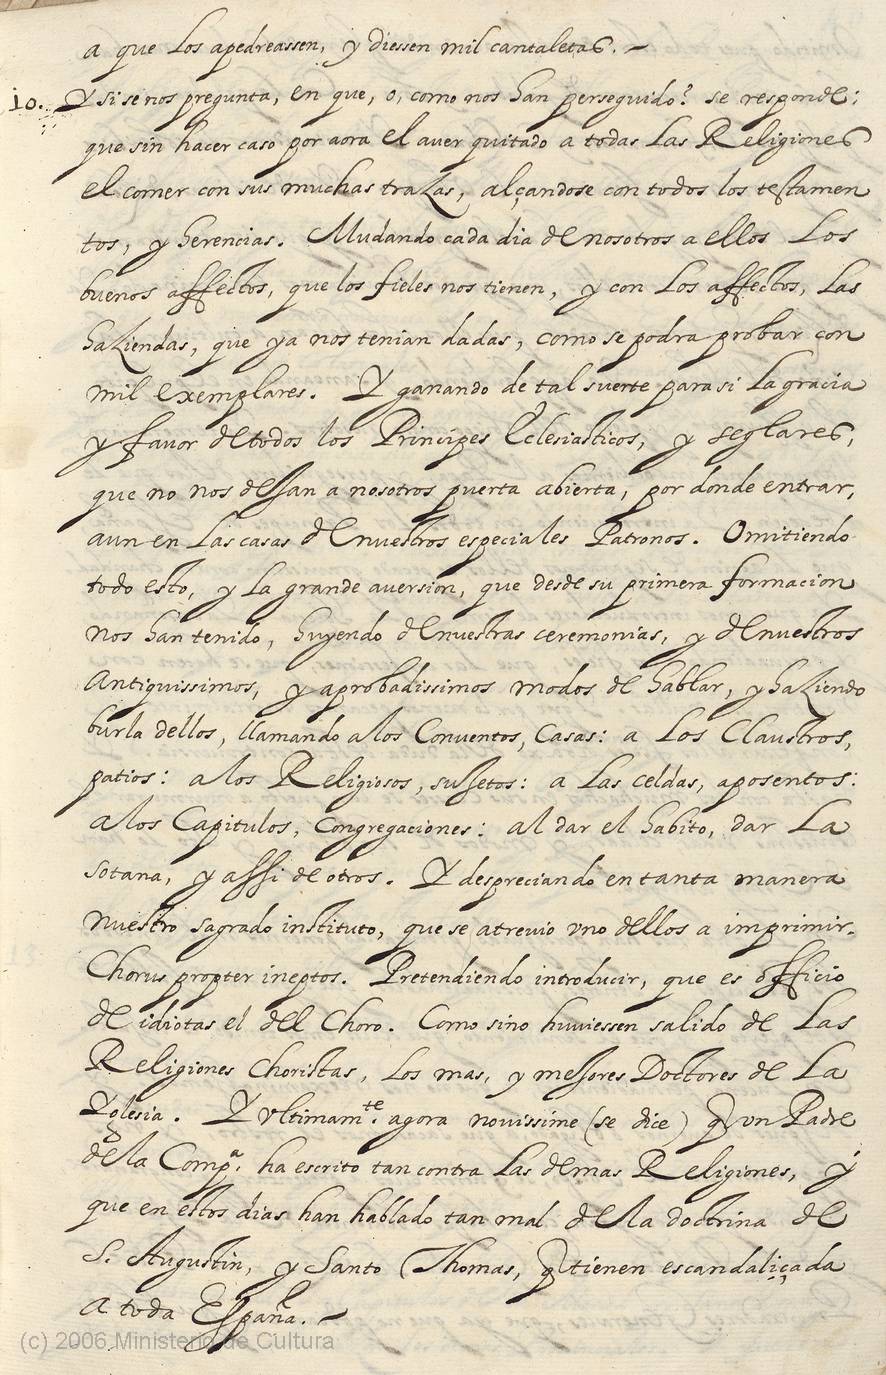 a que los apedreassen, y diessen mil cantaletas.
10. Y si se nos pregunta, en que, o, como nos han perseguido? se responde:
que sin hacer caso por aora el aver quitado a todas las Religiones
el comer con sus muchas trazas, alçandose con todos los testamen
tos, y herencias. Mudando cada dia de nosotros a ellos los
buenos affectos, que los fieles nos tienen, y con los affectos, las
haziendas, que ya nos tenian dadas, como se podra probar con
mil exemplares. Y ganando de tal suerte para si la gracia
y favor de todos los Principes Eclesiasticos, y seglares,
que no nos dejan a nosotros puerta abierta, por donde entrar,
aun en las casas de nuestros especiales Patronos. Omitiendo
todo esto, y la grande aversion, que desde su primera formacion
nos han tenido, huyendo de nuestras ceremonias, y de nuestros
antiquissimos, y aprobadissimos modos de hablar, y haziendo
burla dellos, llamando a los Conventos, Casas: a los Claustros,
patios: a los Religiosos, sujetos: a las celdas, aposentos:
a los Capitulos, Congregaciones: al dar el habito, dar la
sotana, y assi de otros. Y despreciando en tanta manera
nuestro sagrado instituto, que se atrevio uno dellos a imprimir.
Chorus propter ineptos. Pretendiendo introducir, que es officio
de idiotas el del Choro. Como sino huviessen salido de las
Religiones Choristas, los mas, y mejores Doctores de la
Yglesia. Y ultimamte. agora novissime (se dice) q un Padre
de la Compa. ha escrito tan contra las demas Religiones, y
que en estos dias han hablado tan mal de la doctrina de
S. Augustin, y Santo Thomas, q tienen escandaliçada
a toda España.
(c) 2006 Ministerio de Cultura